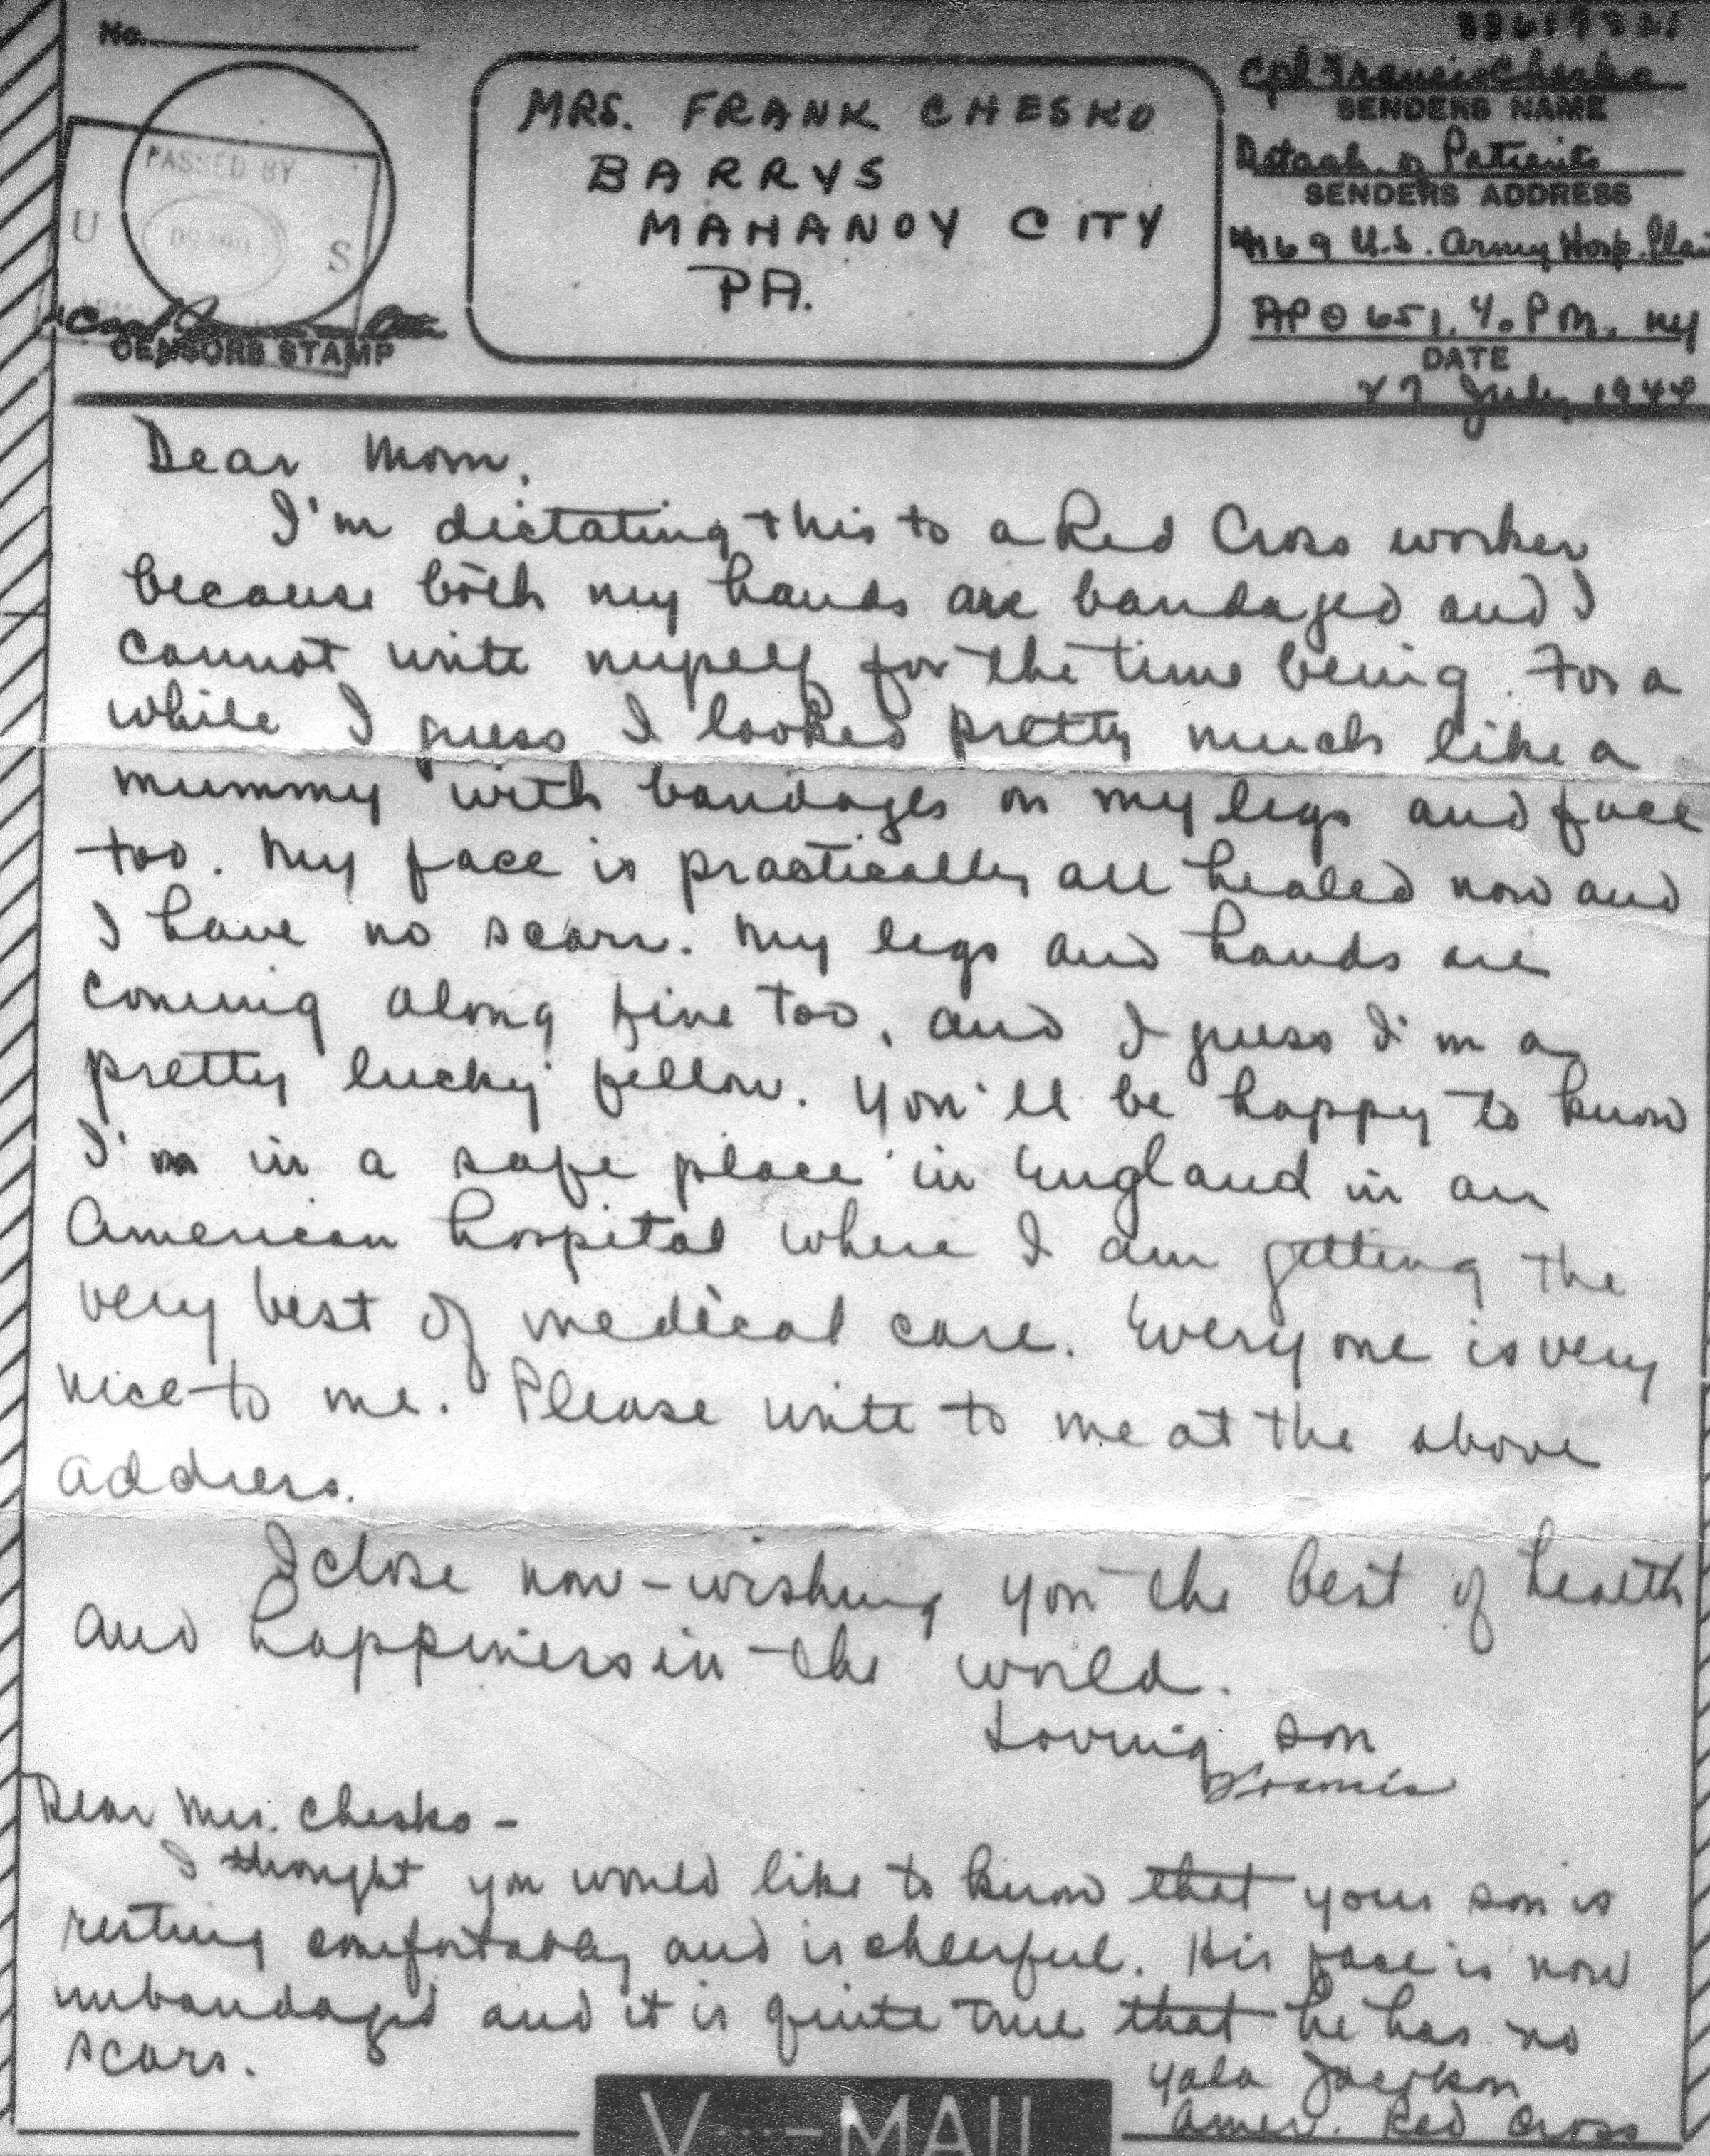 No.
MRS. FRANK CHESKO
BARRYS
MAHANOY CITY
PA.
PASSED BY
U S
CENSORS STAMP
Cpl Francis Chesko
SENDERS NAME
Detach. of Patients
SENDERS ADDRESS
4169 U.S. Army Hosp. Plant
APO 651, % P M. NY
DATE
27 July 1944
Dear Mom,
I'm dictating this to a Red Cross worker
because both my hands are bandaged and I
cannot write myself for the time being. For a
while I guess I looked pretty much like a
mummy with bandages on my legs and face
too. My face is practically all healed now and
I have no scars. My legs and hands are
coming along fine too, and I guess I'm a
pretty lucky fellow. You'll be happy to know
I'm in a safe place in England in an
American hospital where I am getting the
very best of medical care. Everyone is very
nice to me. Please write to me at the above
address.
I close now - wishing you the best of health
and happiness in the world.
Loving son
Francis
Dear Mrs. Chesko -
I thought you would like to know that your son is
resting comfortably and is cheerful. His face is now
unbandaged and it is quite true that he has no
scars.
Jackson
Amer. Red Cross
V···-MAIL